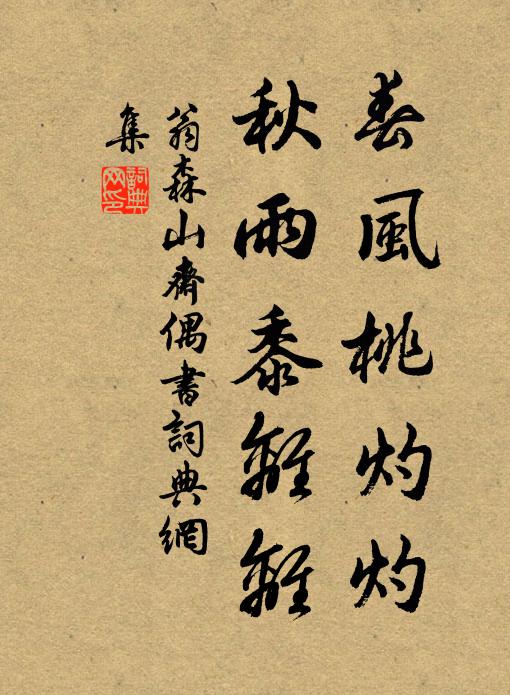 春風桃灼灼
秋雨黍離離
翁森山齋偶書詞典網
集
詞典
网印